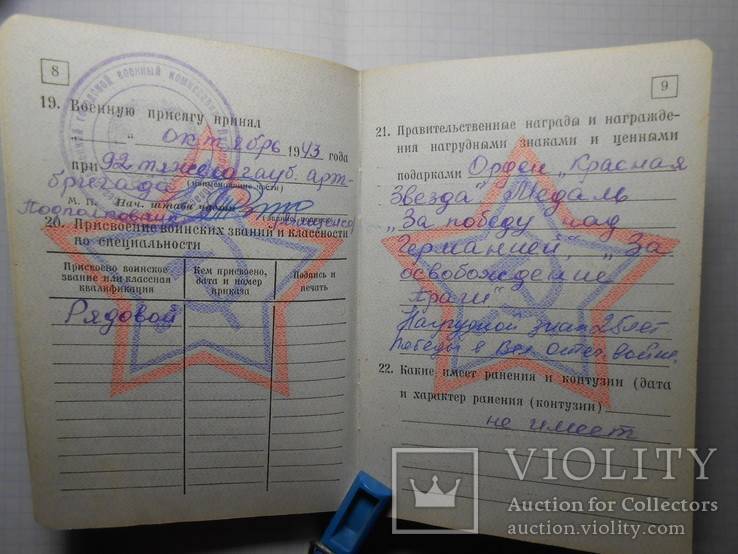 8
19. Военную присягу принял
" " октябрь 1943 года
при 92 тяжелогауб. арт-
бригада
(наименование части)
М. П. Нач. штаба части
Подполковник
20. Присвоение воинских званий и классность
по специальности
Присвоено воинское звание или классная квалификация
Кем присвоено, дата и номер приказа
Подпись и печать
Рядовой
9
21. Правительственные награды и награжде-
ния нагрудными знаками и ценными
подарками Орден „Красная
Звезда" Медаль
„За победу над
Германией", „За
освобождение
Праги"
Нагрудной знак 25 лет
Победы в Вел. Отеч. войне.
22. Какие имеет ранения и контузии (дата
и характер ранения (контузии)
не имеет
VIOLITY
Auction for Collectors
auction.violity.com